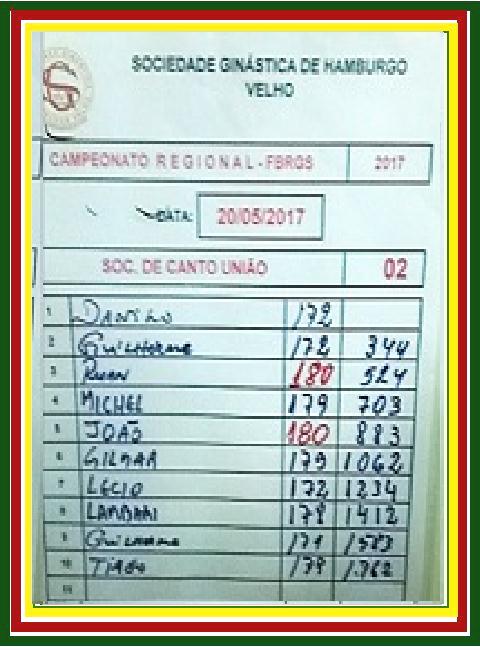 SOCIEDADE GINÁSTICA DE HAMBURGO
VELHO
CAMPEONATO REGIONAL - FBRGS 2017
DATA: 20/05/2017
SOC. DE CANTO UNIÃO 02
1 DANILO 172
2 GUILHERME 172 344
3 RUAN 180 524
4 MICHEL 179 703
5 JOÃO 180 883
6 GILMAR 179 1062
7 LÉCIO 172 1234
8 178 1412
9 GUILHERME 171 1583
10 TIAGO 179 1.762
11